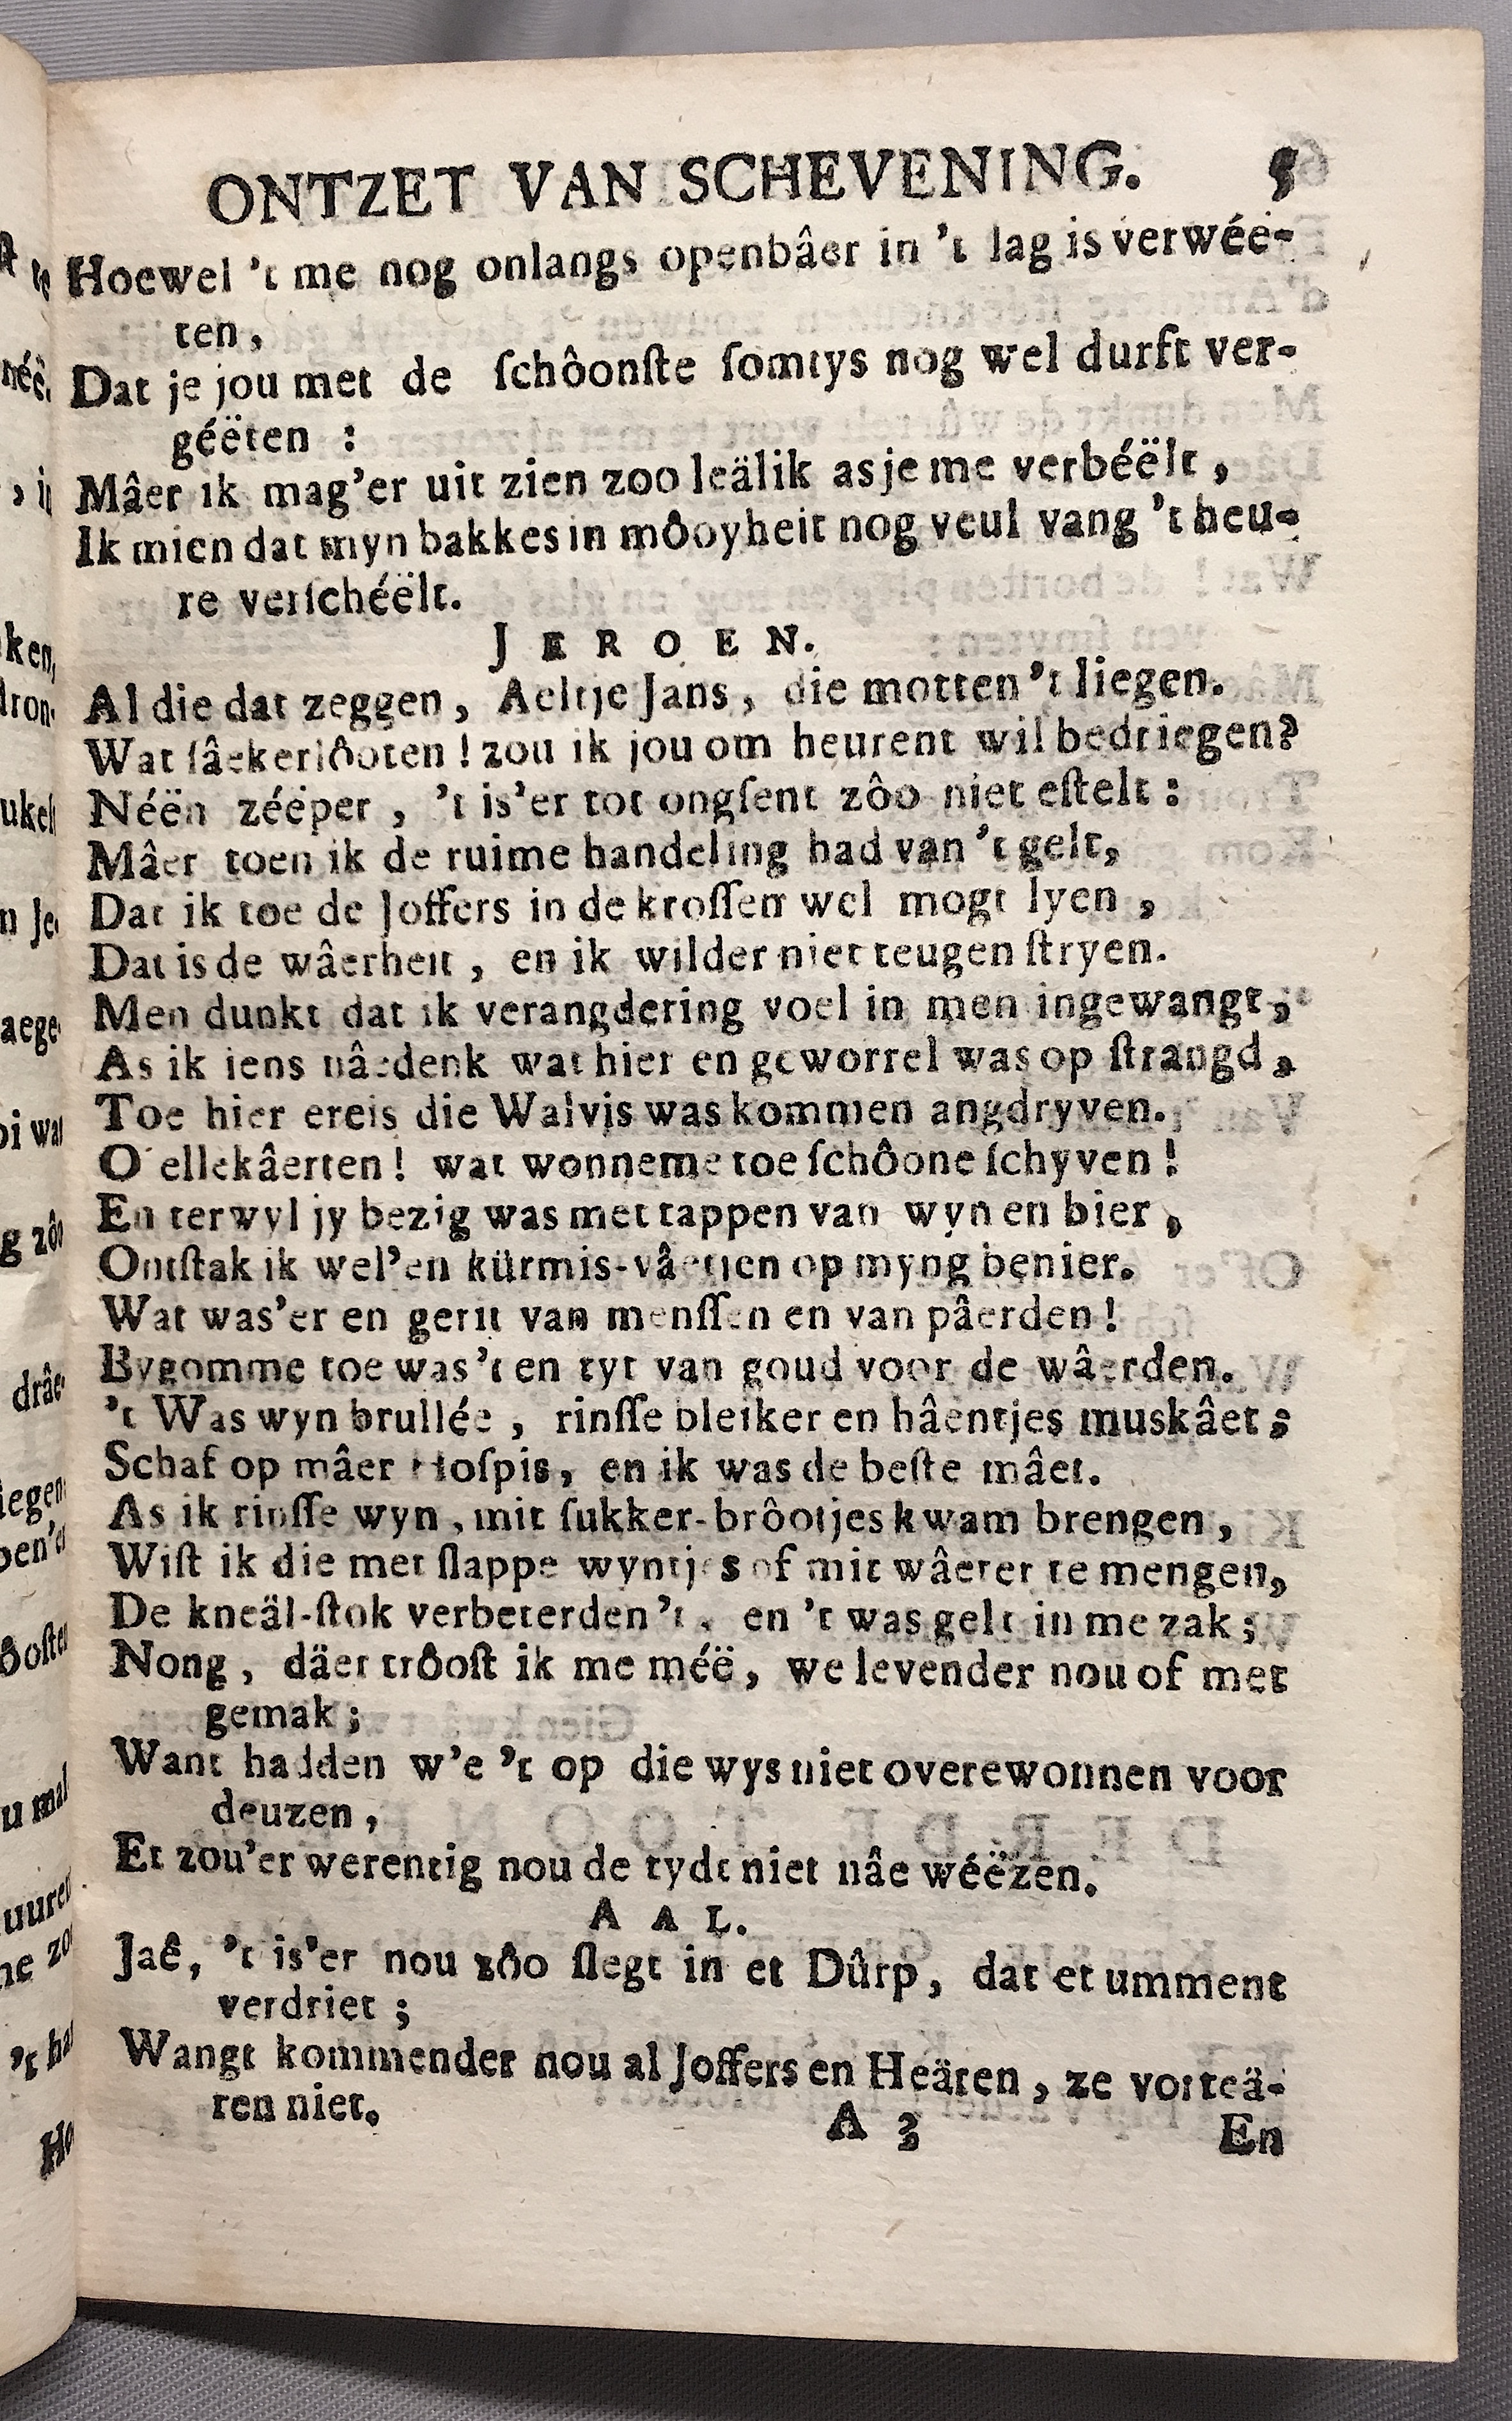 ONTZET VAN SCHEVENING. 5
Hoewel 't me nog onlangs openbâer in 't lag is verwée-
ten,
Dat je jou met de ſchôonſte ſomtys nog wel durft ver-
géëten :
Mâer ik mag'er uit zien zoo leälik as je me verbéëlt,
Ik mien dat myn bakkes in môoyheit nog veul vang 't heu-
re verſchéëlt.
JEROEN.
Al die dat zeggen, Aeltje Jans, die motten 't liegen.
Wat ſâekerlôoten! zou ik jou om heurent wil bedriegen?
Néën zéëper, 't is'er tot ongſent zôo niet eſtelt:
Mâer toen ik de ruime handeling had van 't gelt,
Dat ik toe de Joffers in de kroſſen wel mogt lyen,
Dat is de wâerheit, en ik wilder niet teugen ſtryen.
Men dunkt dat ik verangdering voel in men ingewangt,
As ik iens nâedenk wat hier en geworrel was op ſtrangd,
Toe hier ereis die Walvis was kommen angdryven.
O ellekâerten! wat wonneme toe ſchôone ſchyven!
En terwyl jy bezig was met tappen van wyn en bier,
Ontſtak ik wel'en kürmis-vâetjen op myng benier.
Wat was'er en gerit van menſſen en van pâerden!
Bygomme toe was 't en tyt van goud voor de wâerden.
't Was wyn brullée, rinſſe bleiker en hâentjes muskâet;
Schaf op mâer Hoſpis, en ik was de beſte mâet.
As ik rinſſe wyn, mit ſukker-brôotjes kwam brengen,
Wiſt ik die met ſlappe wyntjes of mit wâeter te mengen,
De kneäl-ſtok verbeterden 't, en 't was gelt in me zak;
Nong, däer trôoſt ik me méë, we levender nou of met
gemak;
Want hadden w'e 't op die wys niet overewonnen voor
deuzen,
Et zou'er werentig nou de tydt niet nâe wéëzen.
AAL.
Jaê, 't is'er nou zôo ſlegt in et Dûrp, dat et umment
verdriet;
Wangt kommender nou al Joffers en Heären, ze vorteä-
ren niet.
A 3 En